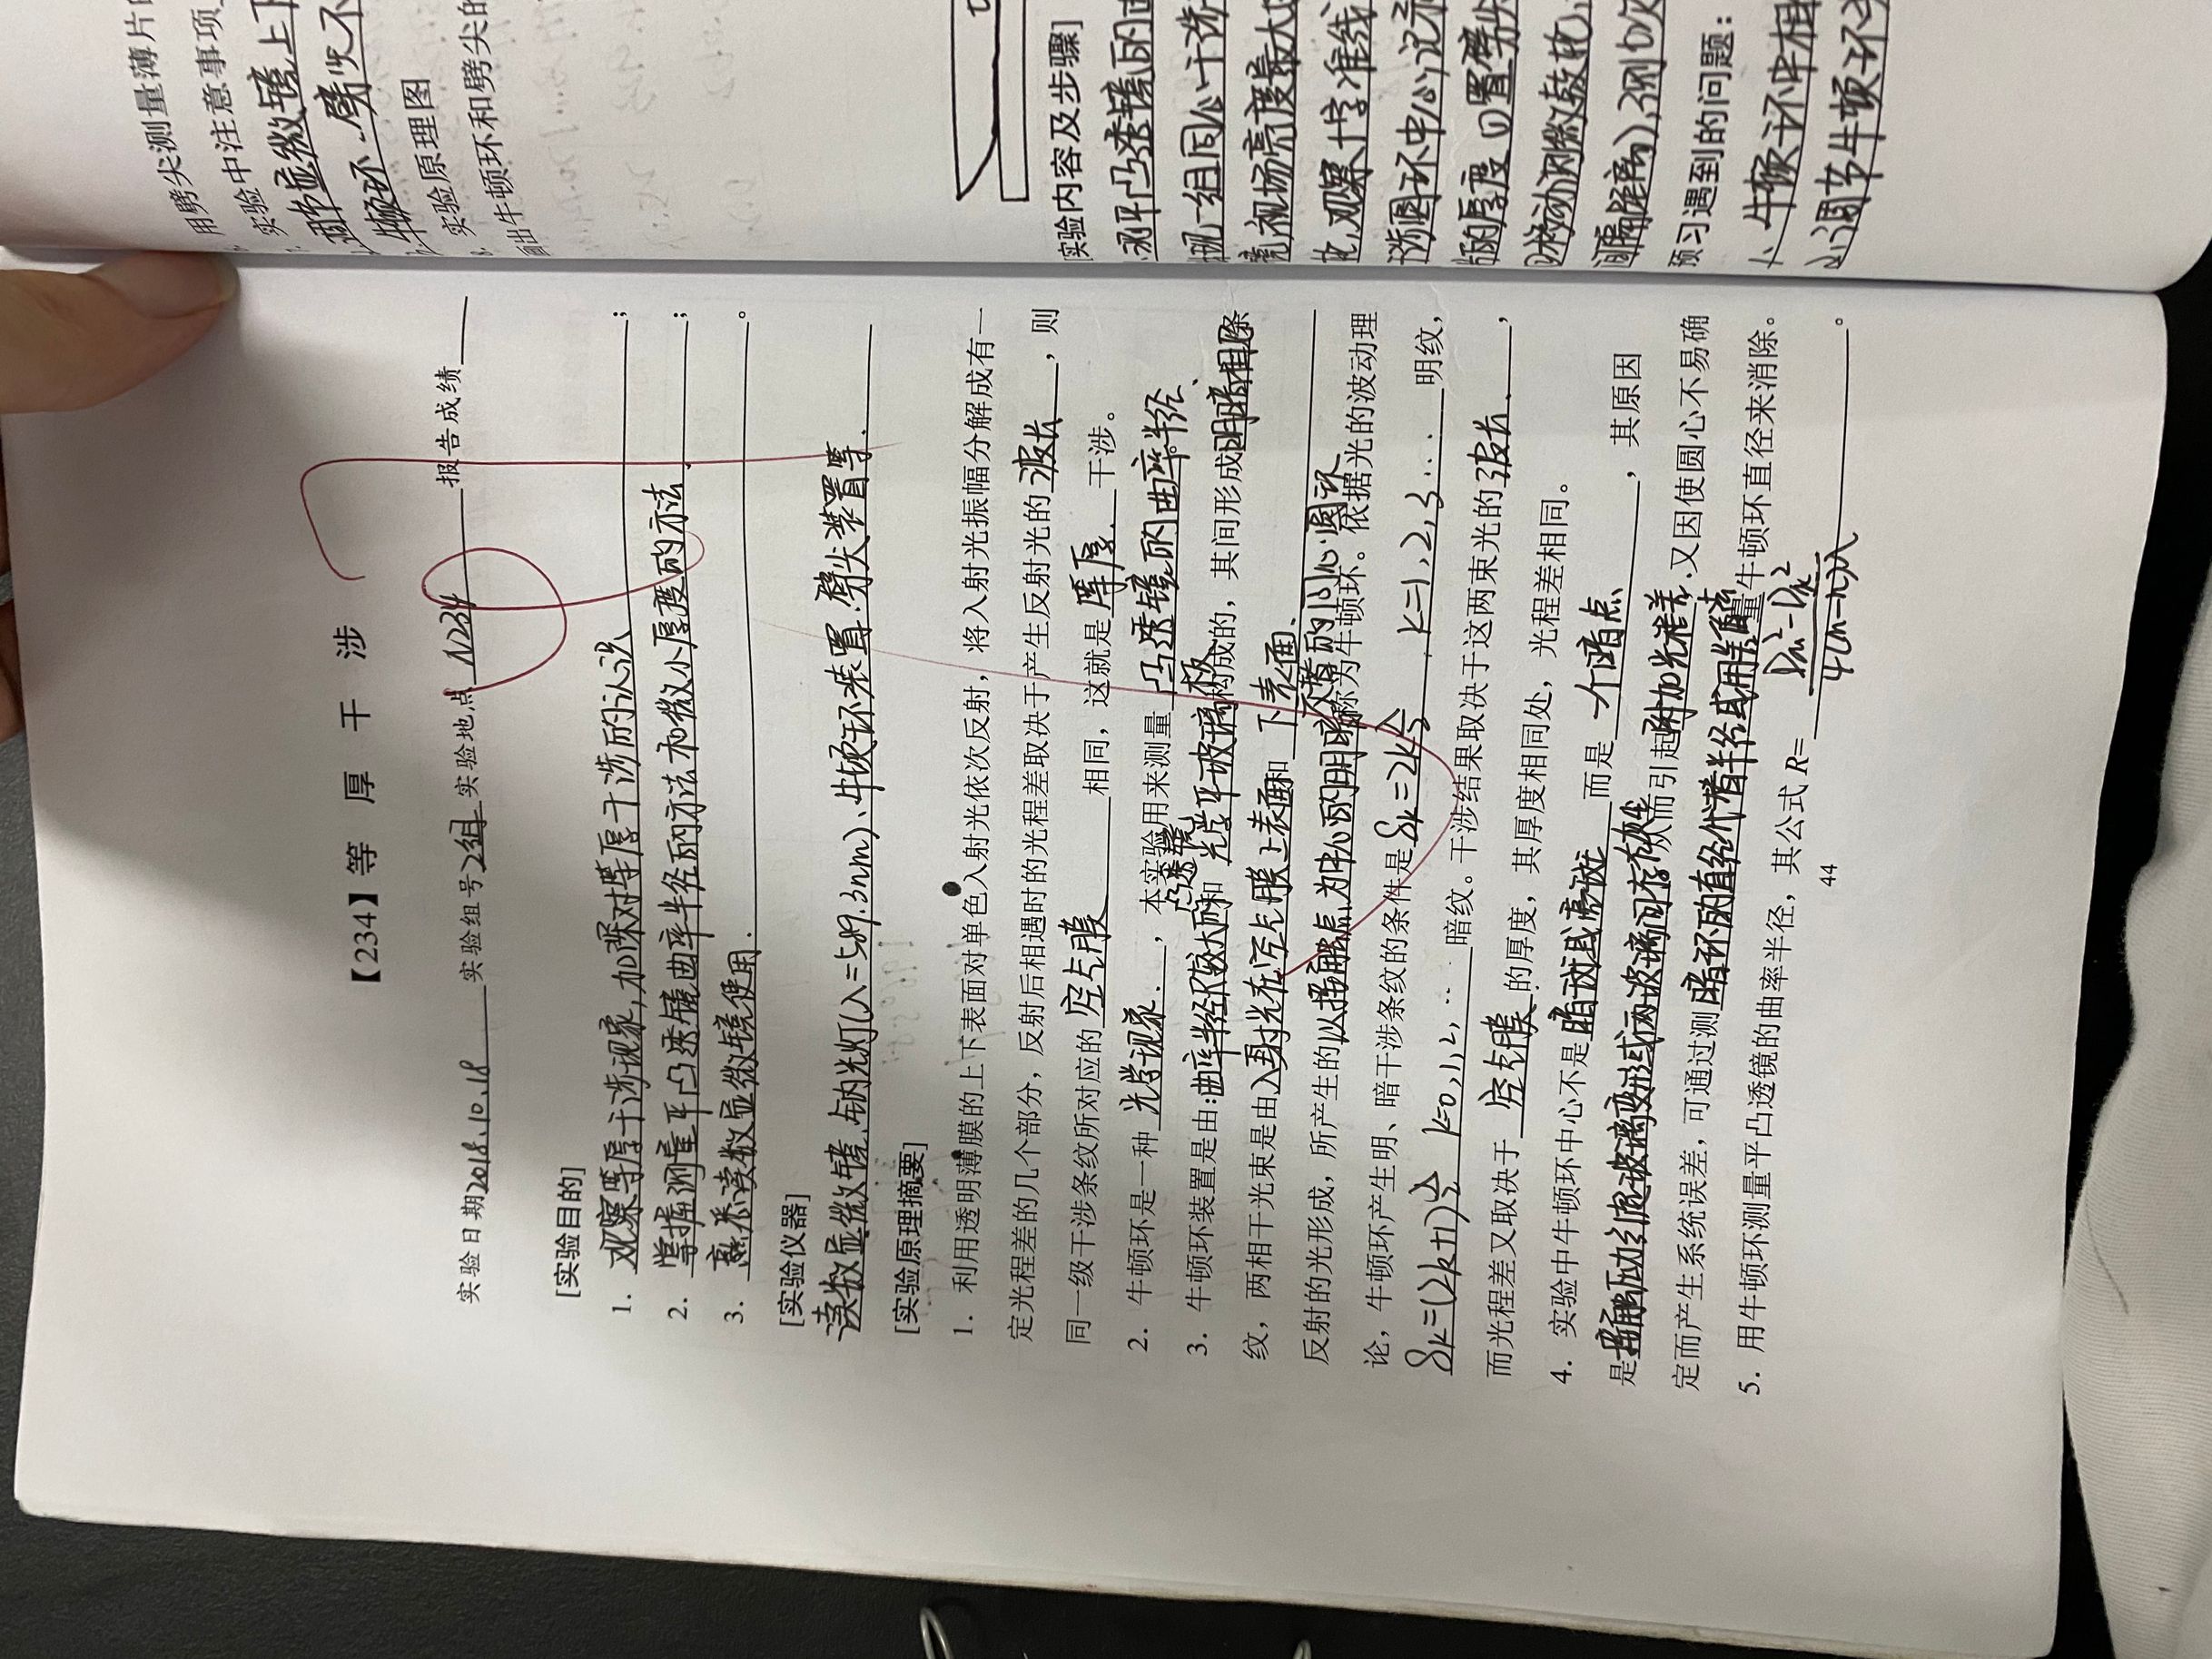 【234】等 厚 干 涉
实验日期2018.10.18 实验组号2组 实验地点 N234 报告成绩
[实验目的]
1. 观察等厚干涉现象,加深对等厚干涉的认识;
2. 掌握测量平凸透镜曲率半径的方法和微小厚度的方法;
3. 熟悉读数显微镜使用.。
[实验仪器]
读数显微镜、钠光灯(λ=589.3nm)、牛顿环装置、劈尖装置等.
[实验原理摘要]
1. 利用透明薄膜的上下表面对单色入射光依次反射,将入射光振幅分解成有一
定光程差的几个部分,反射后相遇时的光程差取决于产生反射光的 波长 ,则
同一级干涉条纹所对应的 空气膜 相同,这就是 等厚. 干涉。
2. 牛顿环是一种 光学现象. ,本实验用来测量 凸透镜的曲率半径.
3. 牛顿环装置是由:曲率半径R较大的凸透镜和 光学平玻璃板构成的,其间形成明暗相间条
纹,两相干光束是由入射光在空气膜上表面和 下表面.
反射的光形成,所产生的以接触点为中心的明暗交替的同心圆环称为牛顿环。依据光的波动理
论,牛顿环产生明、暗干涉条纹的条件是δk=2kλ/2 , k=1,2,3... 明纹,
δk=(2k+1)λ/2 k=0,1,2,... 暗纹。干涉结果取决于这两束光的 波长. ,
而光程差又取决于 空气膜 的厚度,其厚度相同处,光程差相同。
4. 实验中牛顿环中心不是 暗斑或亮斑 而是 一个暗点 ,其原因
是接触压力引起玻璃变形或两玻璃间存在灰尘 从而引起附加光程差.又因使圆心不易确
定而产生系统误差,可通过测 暗环的直径代替半径或用 量牛顿环直径来消除。
5. 用牛顿环测量平凸透镜的曲率半径,其公式 R= (Dm²-Dn²)/4(m-n)λ 。
44
用劈尖测量薄片
实验中注意事项
调节显微镜上下
牛顿环、劈尖不
8. 实验原理图
画出牛顿环和劈尖的
[实验内容及步骤]
测平凸透镜的曲
现一组同心干涉
镜,视场亮度最大
观察十字准线
干涉圆环中心,记录
的厚度 ①置劈尖
②移动测微鼓轮
预习遇到的问题:
1、牛顿环中相
2、调节牛顿环